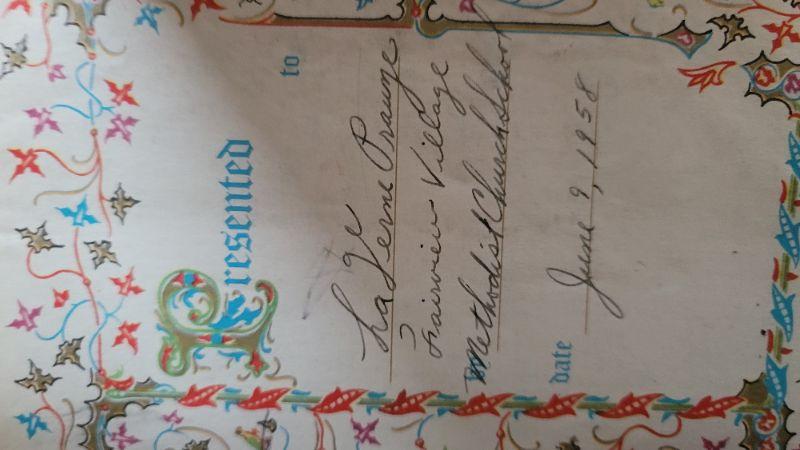 Presented
to
LaVerne Prange
Fairview Village
Methodist Church School
date June 9, 1958